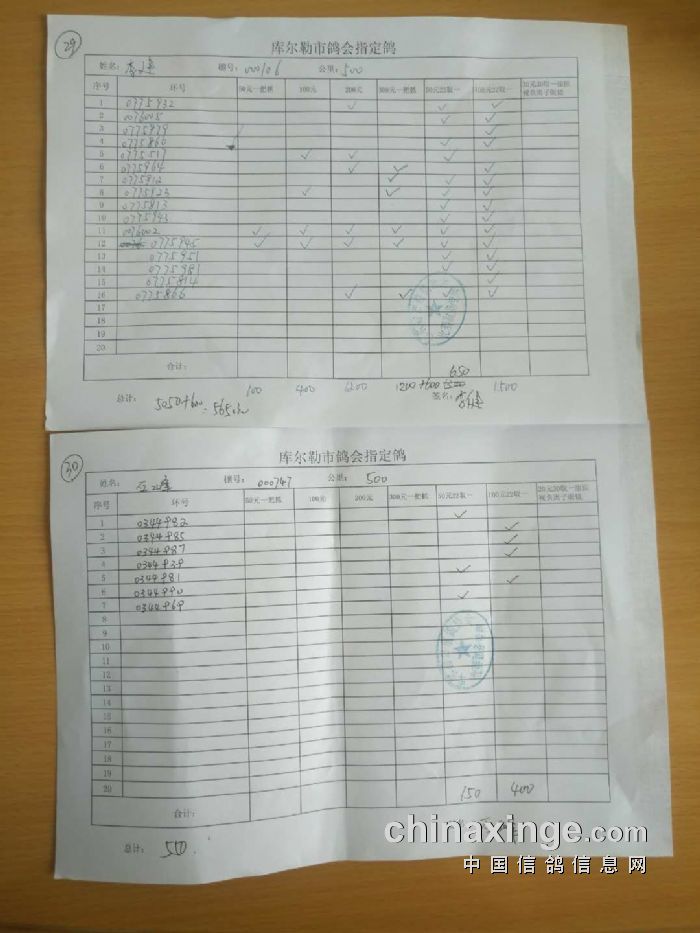 29
库尔勒市鸽会指定鸽
姓名： 棚号：000106 公里：500
序号 环号 50元一把抓 100元 200元 300元一把抓 50元22取一 100元22取一
1 0775932 ✓ ✓ ✓
2 0076005 ✓ ✓
3 0775979 ✓ ✓
4 0775860 ✓ ✓
5 0775517 ✓ ✓ ✓
6 0775964 ✓ ✓ ✓
7 0775812 ✓ ✓ ✓
8 0775923 ✓ ✓ ✓ ✓
9 0775813 ✓ ✓
10 0775943 ✓ ✓
11 0076002 ✓ ✓ ✓ ✓ ✓ ✓
12 0775945 ✓ ✓ ✓ ✓ ✓ ✓
13 0775951 ✓ ✓
14 0775981 ✓ ✓
15 0775814 ✓
16 0775866 ✓ ✓ ✓ ✓
17
18
19
20
合计： 650
100 400 1200 1200 1500
总计： 签名：
30
库尔勒市鸽会指定鸽
姓名： 棚号：000747 公里：500
序号 环号 50元一把抓 100元 200元 300元一把抓 50元22取一 100元22取一
1 0344982 ✓
2 0344985 ✓
3 0344987 ✓
4 0344939 ✓
5 0344981 ✓
6 0344990 ✓
7 0344969 ✓
8
9
10
11
12
13
14
15
16
17
18
19
20
合计： 150 400
总计：
chinaxinge.com
中国信鸽信息网